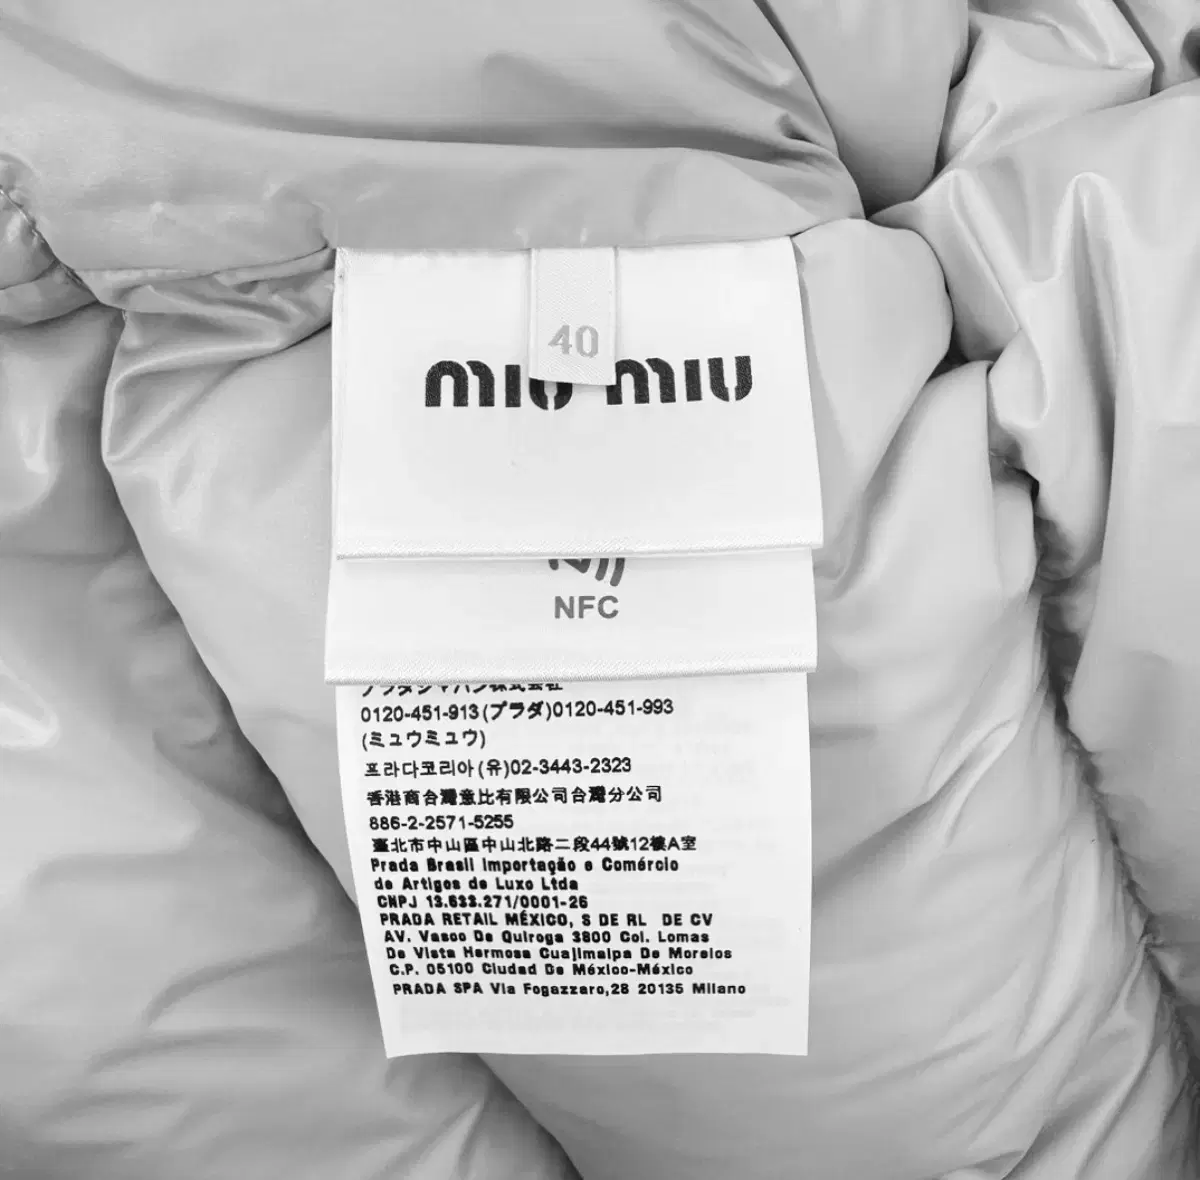 40
miu miu
NFC
プラダジャパン株式会社
0120-451-913(プラダ)0120-451-993
(ミュウミュウ)
프라다코리아(유)02-3443-2323
香港商台灣意比有限公司台灣分公司
886-2-2571-5255
臺北市中山區中山北路二段44號12樓A室
Prada Brasil Importação e Comércio
de Artigos de Luxo Ltda
CNPJ 13.633.271/0001-26
PRADA RETAIL MÉXICO, S DE RL DE CV
AV. Vasco De Quiroga 3800 Col. Lomas
De Vista Hermosa Cuajimalpa De Morelos
C.P. 05100 Ciudad De México-México
PRADA SPA Via Fogazzaro,28 20135 Milano